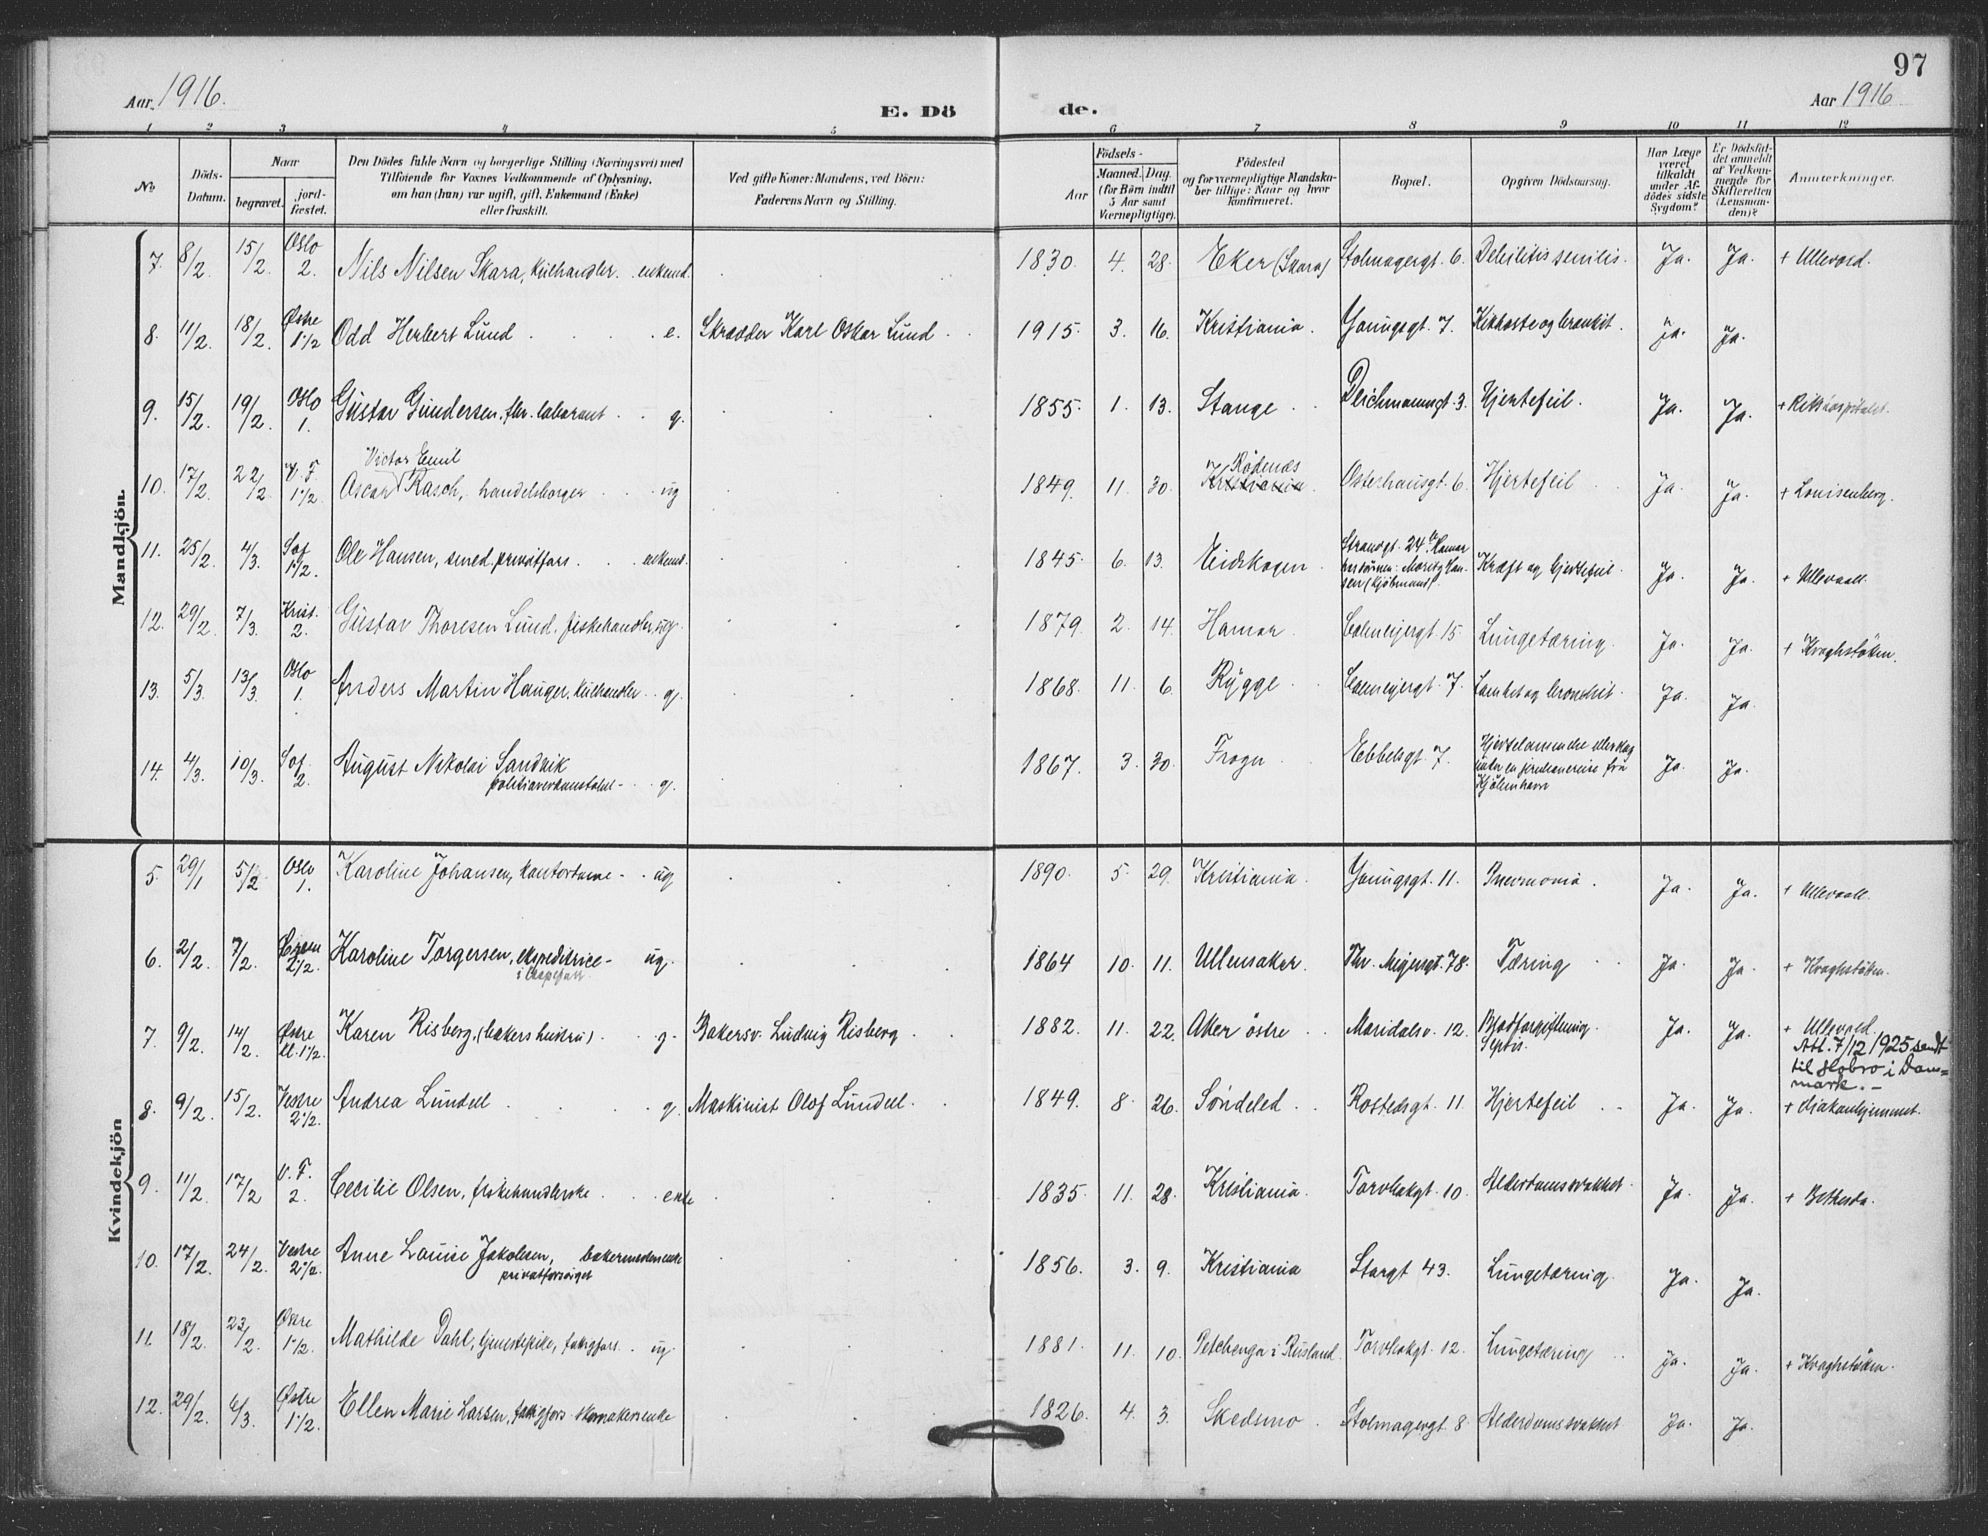 97
Aar 1916.
E. Dö
de.
Aar 1916
1 2 3 4 5 6 7 8 9 10 11 12
No
Döds-
Datum.
Naar
begravet.
jord-
fæstet.
Den Dödes fulde Navn og borgerlige Stilling (Næringsvei) med
Tilföiende for Voxnes Vedkommende af Oplysning,
om han (hun) var ugift, gift, Enkemand (Enke)
eller fraskilt.
Ved gifte Koner: Mandens, ved Börn:
Faderens Navn og Stilling.
Födsels-
Aar
Maaned. Dag.
(for Börn indtil
5 Aar samt
Værnepligtige).
Födested
og for værnepligtige Mandska-
ber tillige: Naar og hvor
konfirmeret.
Bopæl.
Opgiven Dödsaarsag.
Har Læge
været
tilkaldt
under Af-
dödes sidste
Sygdom?
Er Dödsfal-
det anmeldt
af Vedkom-
mende for
Skifteretten
(Lensman-
den)?
Anmerkninger.
Mandkjön.
7. 8/2 15/2 Oslo 2. Nils Nilsen Skara, kulhandler. enkemd. 1830. 4. 28. Eker (Skara) Stolmagergt. 6. Debilitis senilis. Ja. Ja. + Ullevold.
8. 11/2. 18/2. Østre 1 1/2 Odd Herbert Lund e. Skrædder Karl Oskar Lund 1915. 3. 16. Kristiania. Youngsgt. 7. Kikhoste og bronkit. Ja. Ja.
9. 15/2. 19/2. Oslo 1. Gustav Gundersen, fhv. laborant g. 1855. 1. 13. Stange Deichmannsgt. 3. Hjertefeil. Ja. Ja. + Rikshospitalet.
10. 17/2. 22/2 V. F. 1 1/2. Oscar Victor Emil Rasch, handelsborger ug 1849. 11. 30. Kristiania. Rødenæs Osterhausgt. 6. Hjertefeil Ja. Ja. + Lovisenberg.
11. 25/2. 4/3. Sof. 1 1/2. Ole Hansen, smed, privatfors. enkemd. 1845. 6. 13. Eidskogen Strandgt. 24 Hamar Kræft og hjertefeil. Ja. Ja. + Ullevaall.
12. 29/2. 7/3. Krist. 2. Gustav Thoresen Lund, fiskehandler, ug. 1879. 2. 14. Hamar Calmeyergt. 15 Lungetæring. Ja. Ja. + Kroghstøtten.
13. 5/3. 13/3 Oslo 1. Anders Martin Hauger, kulhandler g. 1868. 11. 6. Rygge Calmeyergt. 7. Ja. Ja.
14. 4/3. 10/3. Sof. 2. August Nikolai Sandvik
politioverkonstabel g. 1867. 3. 30. Frogn Ebbelsgt. 7. Hjertelammelse eller slag
under en jernbanereise fra
Kjøbenhavn Ja. Ja.
Kvindekjön
5. 29/1 5/2 Oslo 1. Karoline Johansen, kontordame ug 1890. 5. 29. Kristiania. Youngsgt. 11. Pneumonia. Ja. Ja. + Ullevaall.
6. 2/2. 7/2. 2 1/2. Karoline Torgersen, ekspeditrice ug. 1864 10. 11. Ullensaker. Thv. Meyersgt. 78. Tæring Ja. Ja. + Kroghstøtten.
7. 9/2. 14/2. Østre kl. 1 1/2. Karen Risberg, (bakers hustru) g. Bakersv. Ludvig Risberg 1882. 11. 22. Aker østre Maridalsv. 12. Blodforgiftning.
Sepsis. Ja. Ja. + Ullevold.
Att. 7/12 1925 sendt
til Hobro i Dan=
mark. -
8. 9/2. 15/2. Vestre 2 1/2. Andrea Lundell g. Maskinist Olof Lundell. 1849. 8 26. Søndeled Rostedsgt. 11. Hjertefeil Ja. Ja. + diakonhjemmet.
9. 11/2. 17/2 V. F. 2. Cecilie Olsen, fiskehandlerske enke 1835. 11. 28. Kristiania. Torvbakgt. 10. Alderdomssvakhet. Ja. Ja. + Bethesda.
10. 17/2. 24/2. Vestre 2 1/2. Anne Louise Jakobsen, bakermesterenke
privatforsørget 1856. 3. 9. Kristiania Storgt 43. Lungetæring Ja. Ja.
11. 18/2. 23/2. Østre 1 1/2. Mathilde Dahl, tjenestepike, fattigfors. ug 1881. 11. 10. Petchenga i Rusland. Torvbakgt. 12. Lungetæring Ja. Ja. + Kroghstøtten.
12. 29/2. 6/3. Østre 1 1/2. Ellen Marie Larsen, fattigfors. skomakerenke 1826. 4. 3. Skedsmo Stolmagergt. 8 Alderdomssvakhet Ja. Ja.